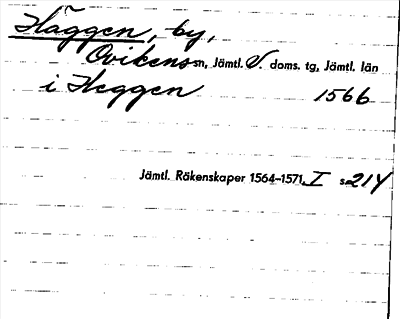 Häggen, by,
Ovikens sn, Jämtl. S. doms. tg, Jämtl. län
i Heggen 1566
Jämtl. Räkenskaper 1564-1571, I s. 214